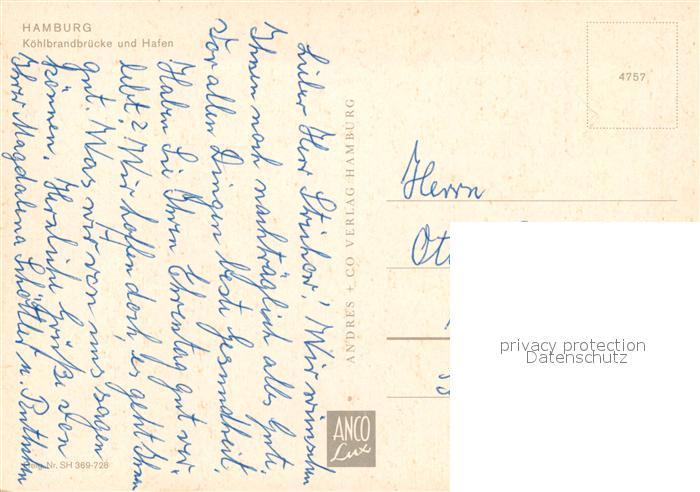 HAMBURG
Köhlbrandbrücke und Hafen
Lieber Herr! Wir wünschen
Ihnen noch nachträglich alles Gute.
Vor allen Dingen beste Gesundheit.
Haben Sie Ihren Ehrentag gut ver-
lebt? Wir hoffen doch, es geht Ihnen
gut. Was wir von uns sagen
können. Herzliche Grüße von
Ihrer Magdalena u.
Nr. SH 369-728
ANDRES + CO VERLAG HAMBURG
ANCO
Lux
4757
Herrn
privacy protection
Datenschutz